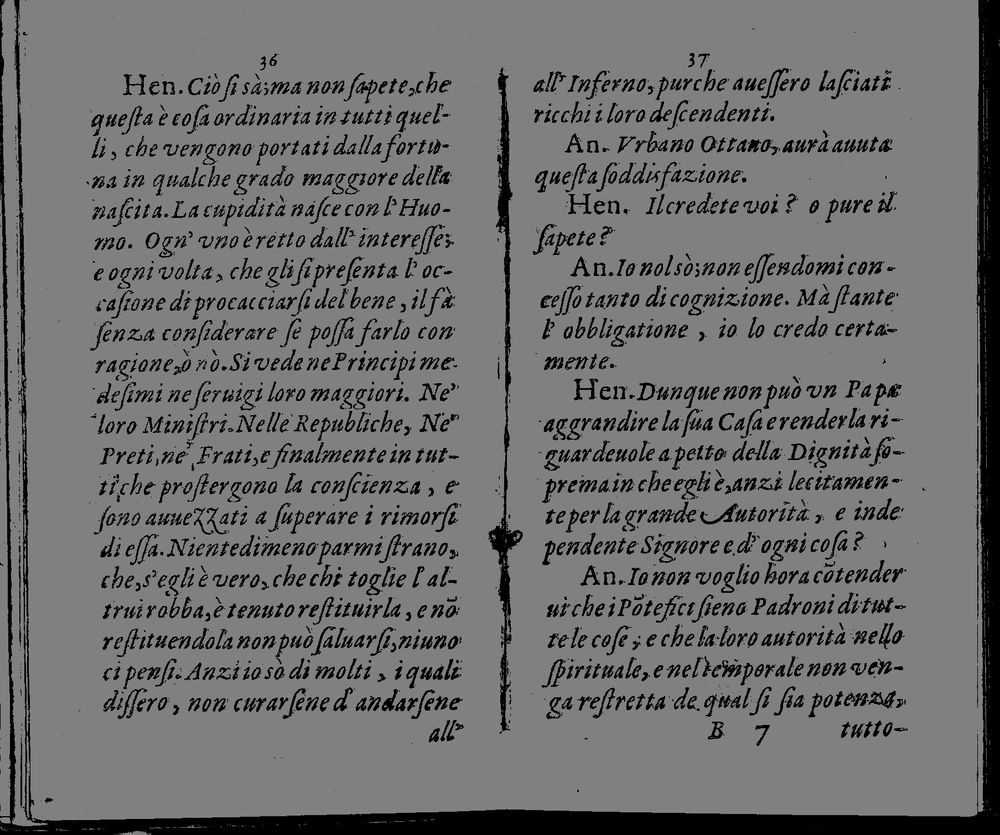 36
Hen. Ciò ſi sà; ma non ſapete, che
queſta è coſa ordinaria in tutti quel-
li, che vengono portati dalla fortu-
na in qualche grado maggiore della
naſcita. La cupidità naſce con l'Huo-
mo. Ogn' vno è retto dall' intereſſe;
e ogni volta, che gli ſi preſenta l' oc-
caſione di procacciarſi del bene, il fà
ſenza conſiderare ſe poſſa farlo con
ragione, ò nò. Si vede ne Principi me-
deſimi ne ſeruigi loro maggiori. Ne'
loro Miniſtri. Nelle Republiche, Ne'
Preti, ne' Frati, e finalmente in tut-
ti, che proſtergono la conſcienza, e
ſono auuezzati a ſuperare i rimorſi
di eſſa. Nientedimeno parmi ſtrano,
che, s'egli è vero, che chi toglie l' al-
trui robba, è tenuto reſtituirla, e nō
reſtituendola non può ſaluarſi, niuno
ci penſi. Anzi io sò di molti, i quali
diſſero, non curarſene d' andarſene
all'
37
all' Inferno, purche aueſſero laſciati
ricchi i loro deſcendenti.
An. Vrbano Ottauo, aurà auuta
queſta ſoddisfazione.
Hen. Il credete voi? o pure il
ſapete?
An. Io nol sò; non eſſendomi con-
ceſſo tanto di cognizione. Mà ſtante
l' obbligatione, io lo credo certa-
mente.
Hen. Dunque non può vn Papa
aggrandire la ſua Caſa e renderla ri-
guardeuole a petto della Dignità ſo-
prema in che egli è, anzi lecitamen-
te per la grande Autorità, e inde
pendente Signore e d' ogni coſa?
An. Io non voglio hora cōtender
ui che i Pōtefici ſieno Padroni di tut-
te le coſe, e che la loro autorità nello
ſpirituale, e nel temporale non ven-
ga reſtretta de qual ſi ſia potenza,
B 7 tutto-